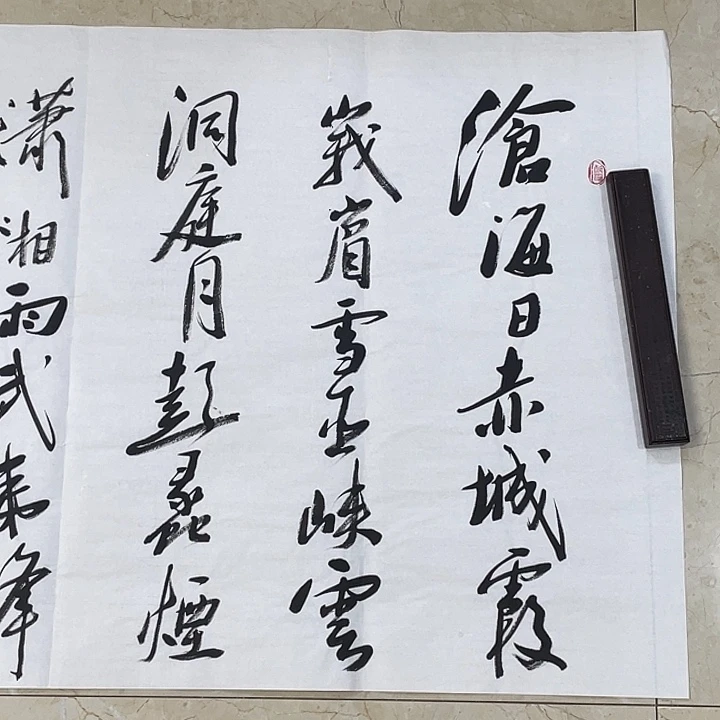 滄海日赤城霞
峩眉雪巫峡雲
洞庭月彭蠡煙
瀟湘雨武夷峰